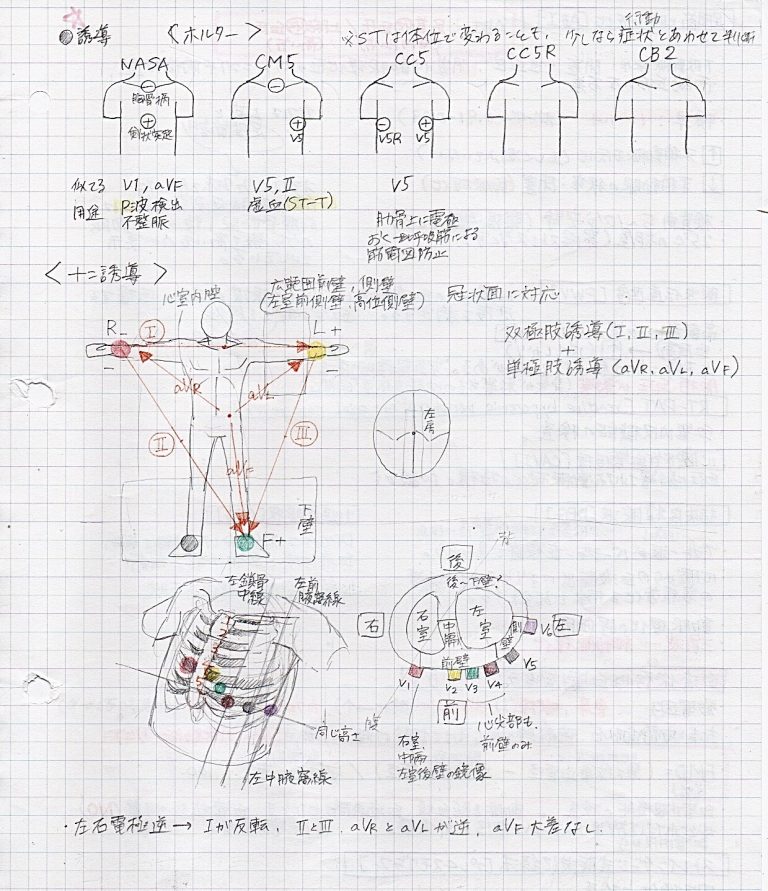 ●誘導 〈ホルター〉 ※STは体位で変わることも、少しなら症状とあわせて判断
行動
NASA CM5 CC5 CC5R CB2
⊖ ⊖
胸骨柄
⊕ ⊕ ⊖ ⊕
剣状突起 V5 V5R V5
似てる V1, aVF V5, II V5
用途 P波検出 虚血(ST-T)
不整脈
肋骨上に電極
おく→呼吸筋による
筋電図防止
〈十二誘導〉
心室内腔 広範囲前壁, 側壁
(左室前側壁、高位側壁) 冠状面に対応
R- I L+
双極肢誘導(I, II, III)
+
単極肢誘導(aVR, aVL, aVF)
- -
aVR aVL
左房
II III
aVF
下壁
F+
左鎖骨中線
左前腋窩線
後
後~下壁?
右 右室 中隔 左室 側壁 V6 左
1
2
3
4
5
前壁 V5
V1 V2 V3 V4
前
同じ高さ
左中腋窩線
右室,
中隔
左室後壁の鏡像
心尖部も,
前壁のみ
・左右電極逆→Iが反転, IIとIII, aVRとaVLが逆, aVF大差なし.